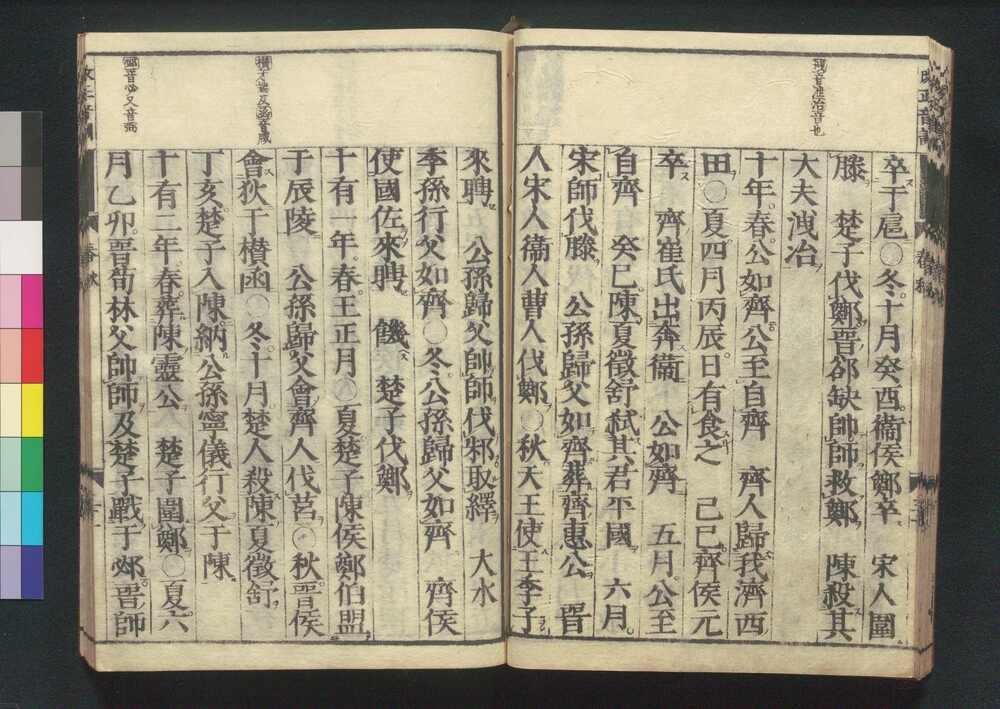 卒于扈○冬十月癸酉衞侯鄭卒　宋人圍
滕　楚子伐鄭晋郤缺帥師救鄭　陳殺其
大夫洩冶
十年春公如齊公至自齊　齊人歸我濟西
田○夏四月丙辰日有食之　己巳齊侯元
卒　齊崔氏出奔衞　公如齊　五月公至
自齊　癸巳陳夏徵舒弑其君平國　六月
宋師伐滕　公孫歸父如齊葬齊惠公　晋
人宋人衞人曹人伐鄭○秋天王使王季子
來聘　公孫歸父帥師伐邾取繹　大水
季孫行父如齊○冬公孫歸父如齊　齊侯
使國佐來聘　饑　楚子伐鄭
十有一年春王正月○夏楚子陳侯鄭伯盟
于辰陵　公孫歸父會齊人伐莒○秋晋侯
會狄于欑函○冬十月楚人殺陳夏徵舒
丁亥楚子入陳納公孫寧儀行父于陳
十有二年春葬陳靈公　楚子圍鄭○夏六
月乙卯晋荀林父帥師及楚子戰于邲晋師
洩音泄冶音也
邲音必又音弼
春秋
春秋